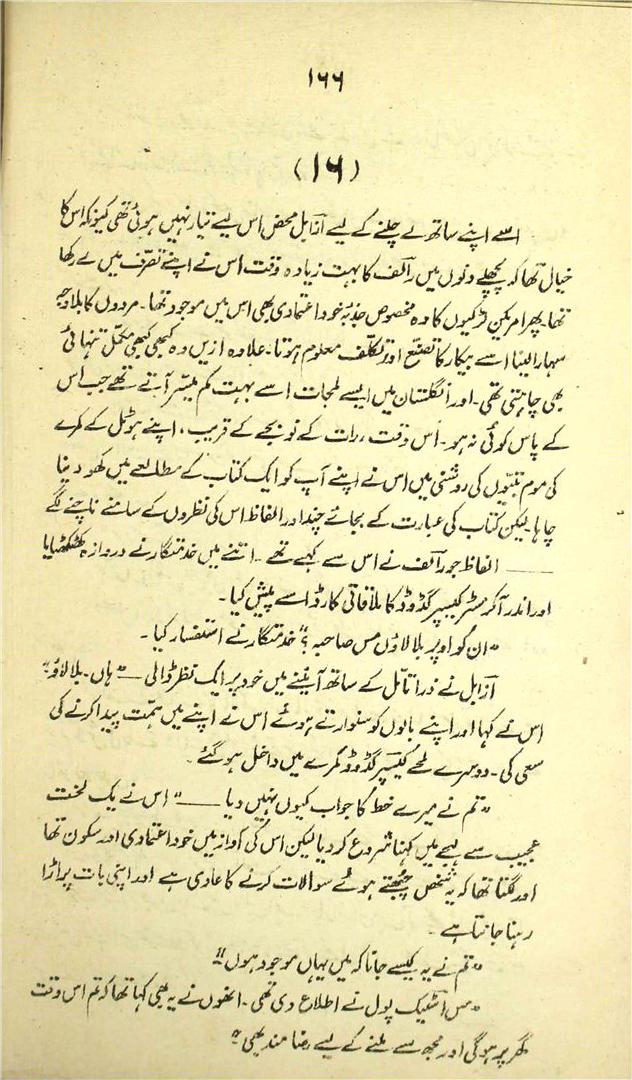 ۱۶۶
(۱۶)
اسے اپنے ساتھ لے چلنے کے لیے آزابل محض اس لیے تیار نہیں ہوئی تھی کیونکہ اس کا
خیال تھا کہ پچھلے دنوں میں رالف کا بہت زیادہ وقت اس نے اپنے تصرّف میں لے رکھا
تھا۔ پھر امریکن لڑکیوں کا وہ مخصوص جذبۂ خود اعتمادی بھی اس میں موجود تھا۔ مردوں کا بلاوجہ
سہارا لینا اسے بیکار کا تصنّع اور تکلف معلوم ہوتا۔ علاوہ ازیں وہ کبھی کبھی مکمّل تنہائی
بھی چاہتی تھی۔ اور انگلستان میں ایسے لمحات اسے بہت کم میسّر آتے تھے جب اس
کے پاس کوئی نہ ہو۔ اُس وقت، رات کے نو بجے کے قریب، اپنے ہوٹل کے کمرے
کی موم بتیّوں کی روشنی میں اس نے اپنے آپ کو ایک کتاب کے مطالعے میں کھو دینا
چاہا۔ لیکن کتاب کی عبارت کے بجائے چند اور الفاظ اس کی نظروں کے سامنے ناچنے لگے
—— الفاظ جو رالف نے اس سے کہے تھے۔ اتنے میں خدمتگار نے دروازہ کھٹکھٹایا
اور اندر آکر مسٹر کیسپر گڈوڈ کا ملاقاتی کارڈ اسے پیش کیا۔
"ان کو اوپر بلا لاؤں مس صاحبہ؟" خدمتگار نے استفسار کیا۔
آزابل نے ذرا تامّل کے ساتھ آئینے میں خود پر ایک نظر ڈالی —— "ہاں۔ بلا لاؤ"
اس نے کہا اور اپنے بالوں کو سنوارتے ہوئے اس نے اپنے میں ہمّت پیدا کرنے کی
سعی کی۔ دوسرے لمحے کیسپر گڈوڈ کمرے میں داخل ہو گئے۔
"تم نے میرے خط کا جواب کیوں نہیں دیا ——" اس نے یک لخت
عجیب سے لہجے میں کہنا شروع کر دیا لیکن اس کی آواز میں خود اعتمادی اور سکون تھا
اور لگتا تھا کہ یہ شخص چبھتے ہوئے سوالات کرنے کا عادی ہے اور اپنی بات پر اڑا
رہنا جانتا ہے۔
"تم نے یہ کیسے جانا کہ میں یہاں موجود ہوں"
"مس اسٹیک پول نے اطلاع دی تھی۔ انھوں نے یہ بھی کہا تھا کہ تم اس وقت
گھر پر ہوگی اور مجھ سے ملنے کے لیے رضا مند بھی"